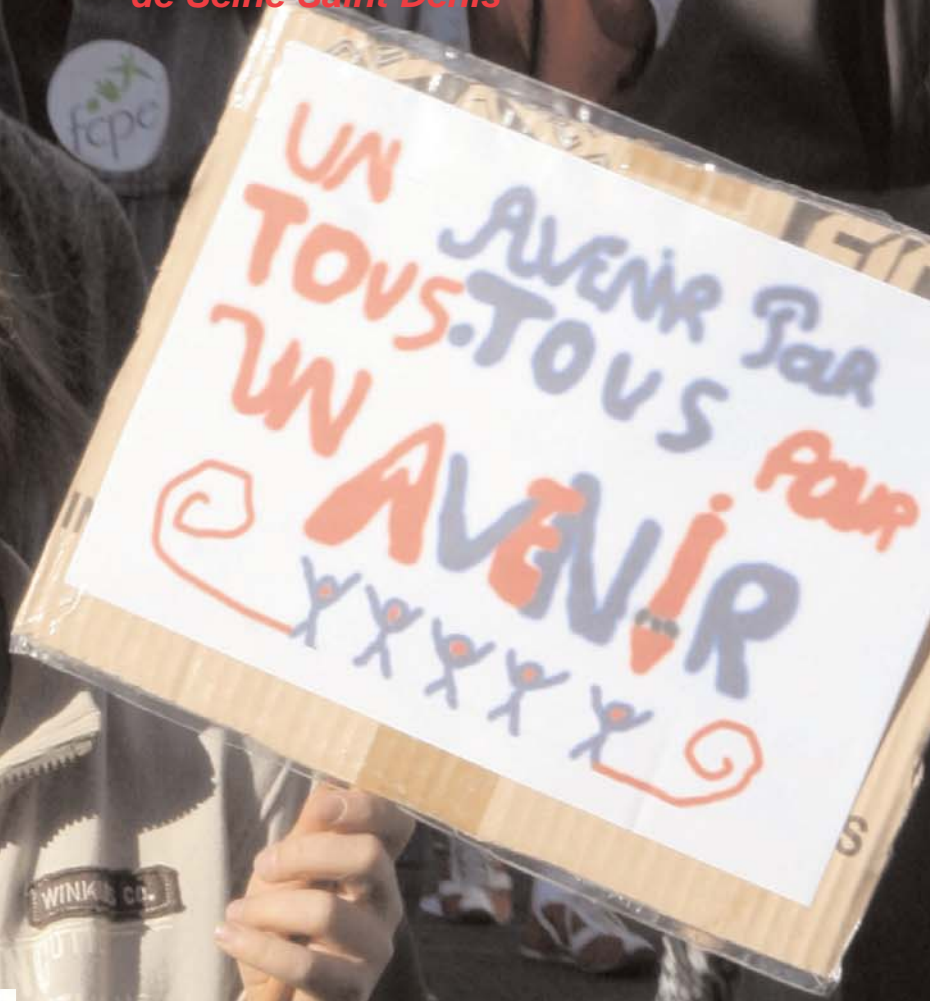 de Seine-Saint-Denis
fcpe
UN AVENIR PaR
TOUS. TOUS POUR
UN AVENiR
CO.
S